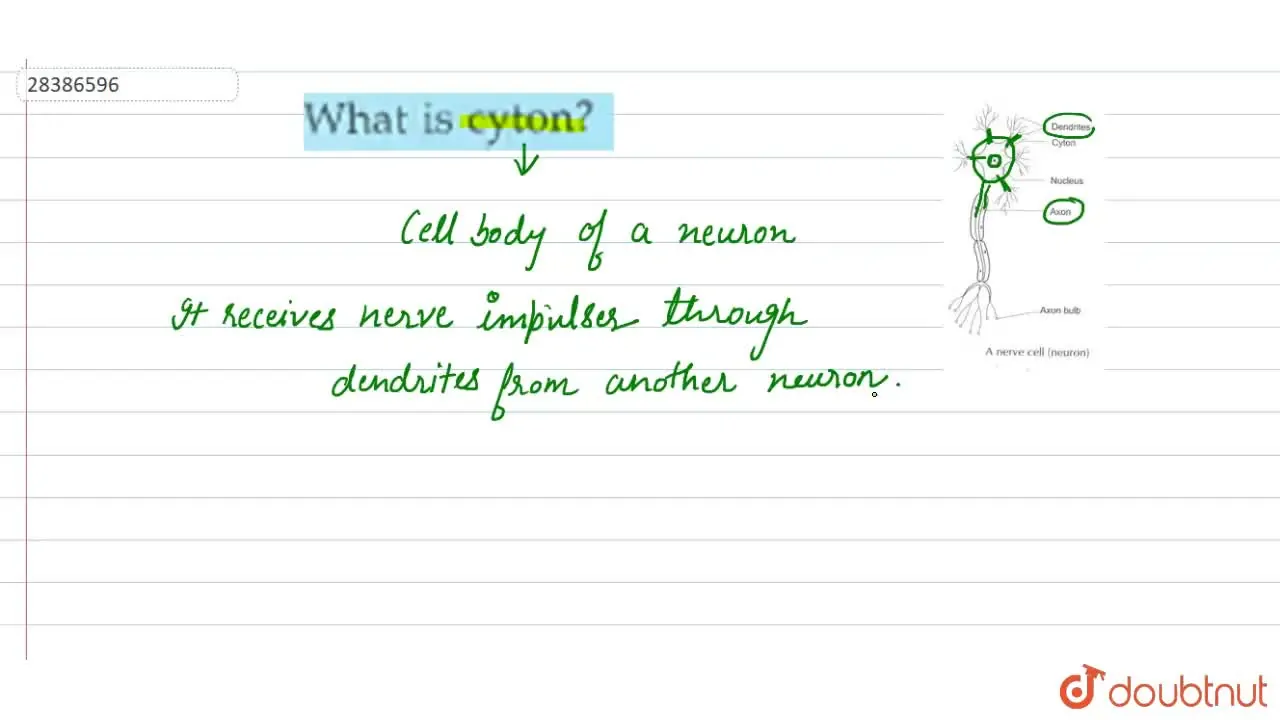 28386596
What is cyton?
Cell body of a neuron
It receives nerve impulses through
dendrites from another neuron.
Dendrites
Cyton
Nucleus
Axon
Axon bulb
A nerve cell (neuron)
doubtnut